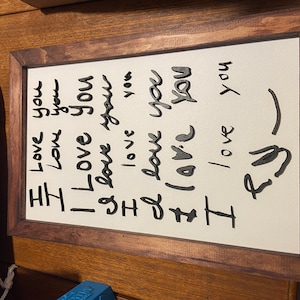 I Love you
I Love you
I Love You
I love you
I love you
I love you
I love you
I love you